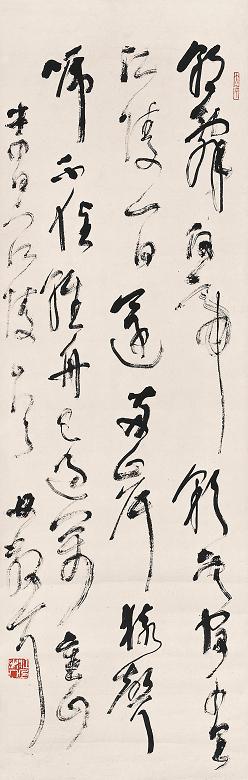 朝辭白帝彩雲間千里
江陵一日還兩岸猿聲
啼不住輕舟已過萬重山
江陵 散耳